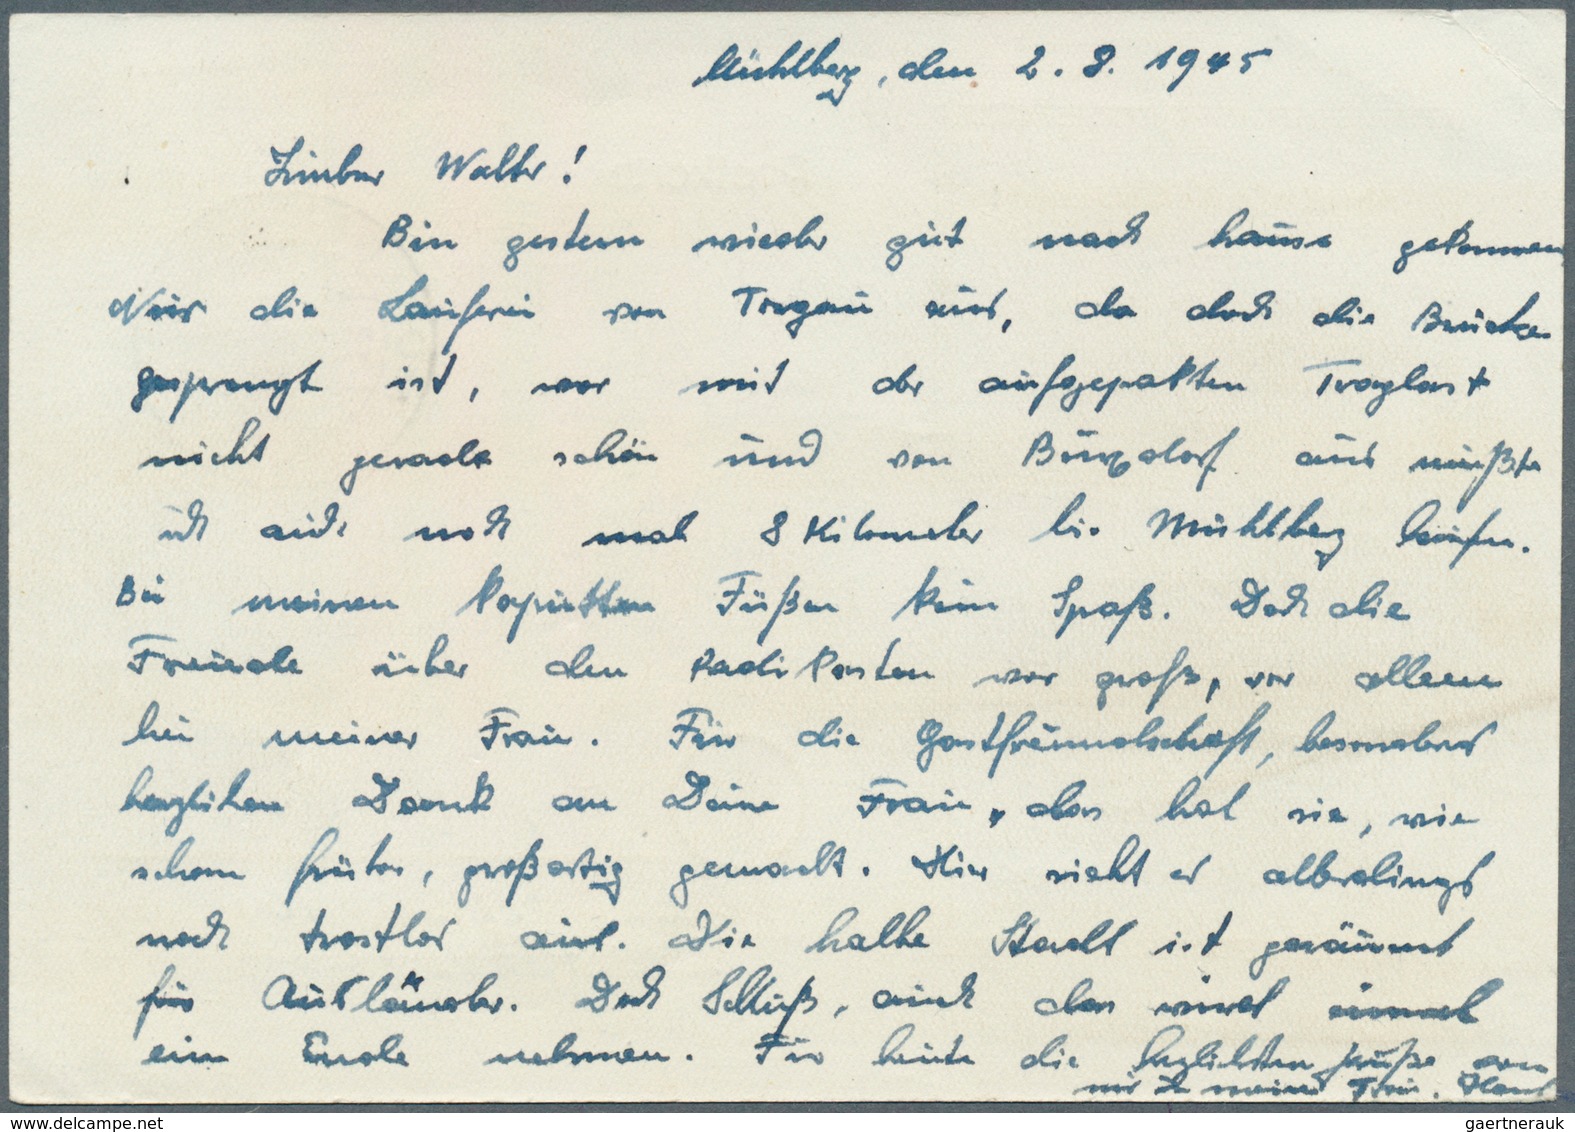 Mühlberg, den 2. 8. 1945
Lieber Walter!
Bin gestern wieder gut nach hause gekommen
Nur die Lauferei von Torgau aus, da doch die Brücke
gesprengt ist, war mit der aufgepakten Traglast
nicht gerade schön und von Burxdorf aus mußte
ich auch noch mal 8 Kilometer bis Mühlberg laufen.
Bei meinen kaputten Füßen kein Spaß. Doch die
Freude über den Radikasten war groß, vor allem
bei meiner Frau. Für die Gastfreundschaft, besonders
herzlichen Dank an Deine Frau, das hat sie, wie
schon früher, großartig gemacht. Hier sieht es allerdings
noch trostlos aus. Die halbe Stadt ist geräumt
für Ausländer. Doch Schluß, auch das wird einmal
ein Ende nehmen. Für heute die herzlichsten Grüße von
mir u. meiner Frau. Hans
gaertnerauk
www.delcampe.net